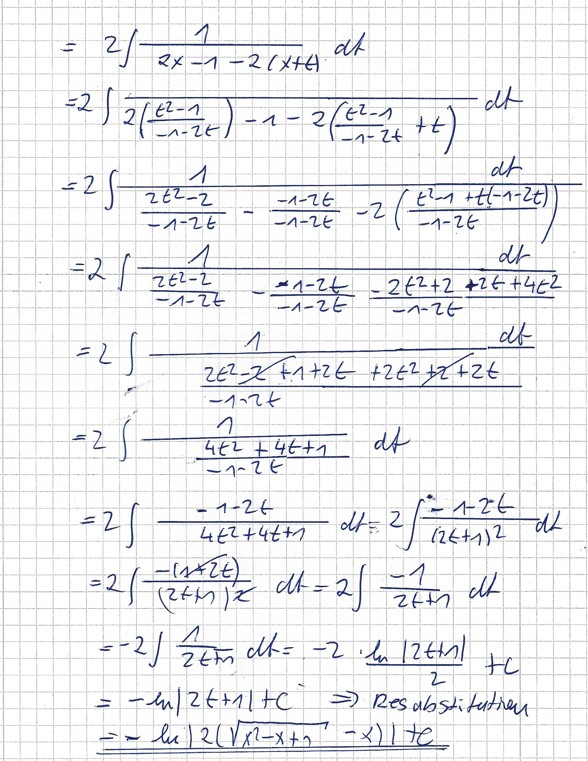 = 2∫ 1/(2x-1-2(x+t)) dt
= 2 ∫ /(2((t²-1)/(-1-2t)) - 1 - 2((t²-1)/(-1-2t) + t)) dt
= 2 ∫ 1/((2t²-2)/(-1-2t) - (-1-2t)/(-1-2t) - 2((t²-1+t(-1-2t))/(-1-2t))) dt
= 2 ∫ 1/((2t²-2)/(-1-2t) - (-1-2t)/(-1-2t) (-2t²+2+2t+4t²)/(-1-2t)) dt
= 2 ∫ 1/((2t²-2+1+2t+2t²+2+2t)/(-1-2t)) dt
= 2 ∫ 1/((4t²+4t+1)/(-1-2t)) dt
= 2 ∫ (-1-2t)/(4t²+4t+1) dt = 2 ∫ (-1-2t)/(2t+1)² dt
= 2 ∫ (-(1+2t))/(2t+1)² dt = 2∫ (-1)/(2t+1) dt
= -2 ∫ 1/(2t+1) dt = -2 · ln|2t+1|/2 + c
= -ln|2t+1| + c ⇒ Resubstitution
= - ln|2(√(x²-x+1) - x)| + c